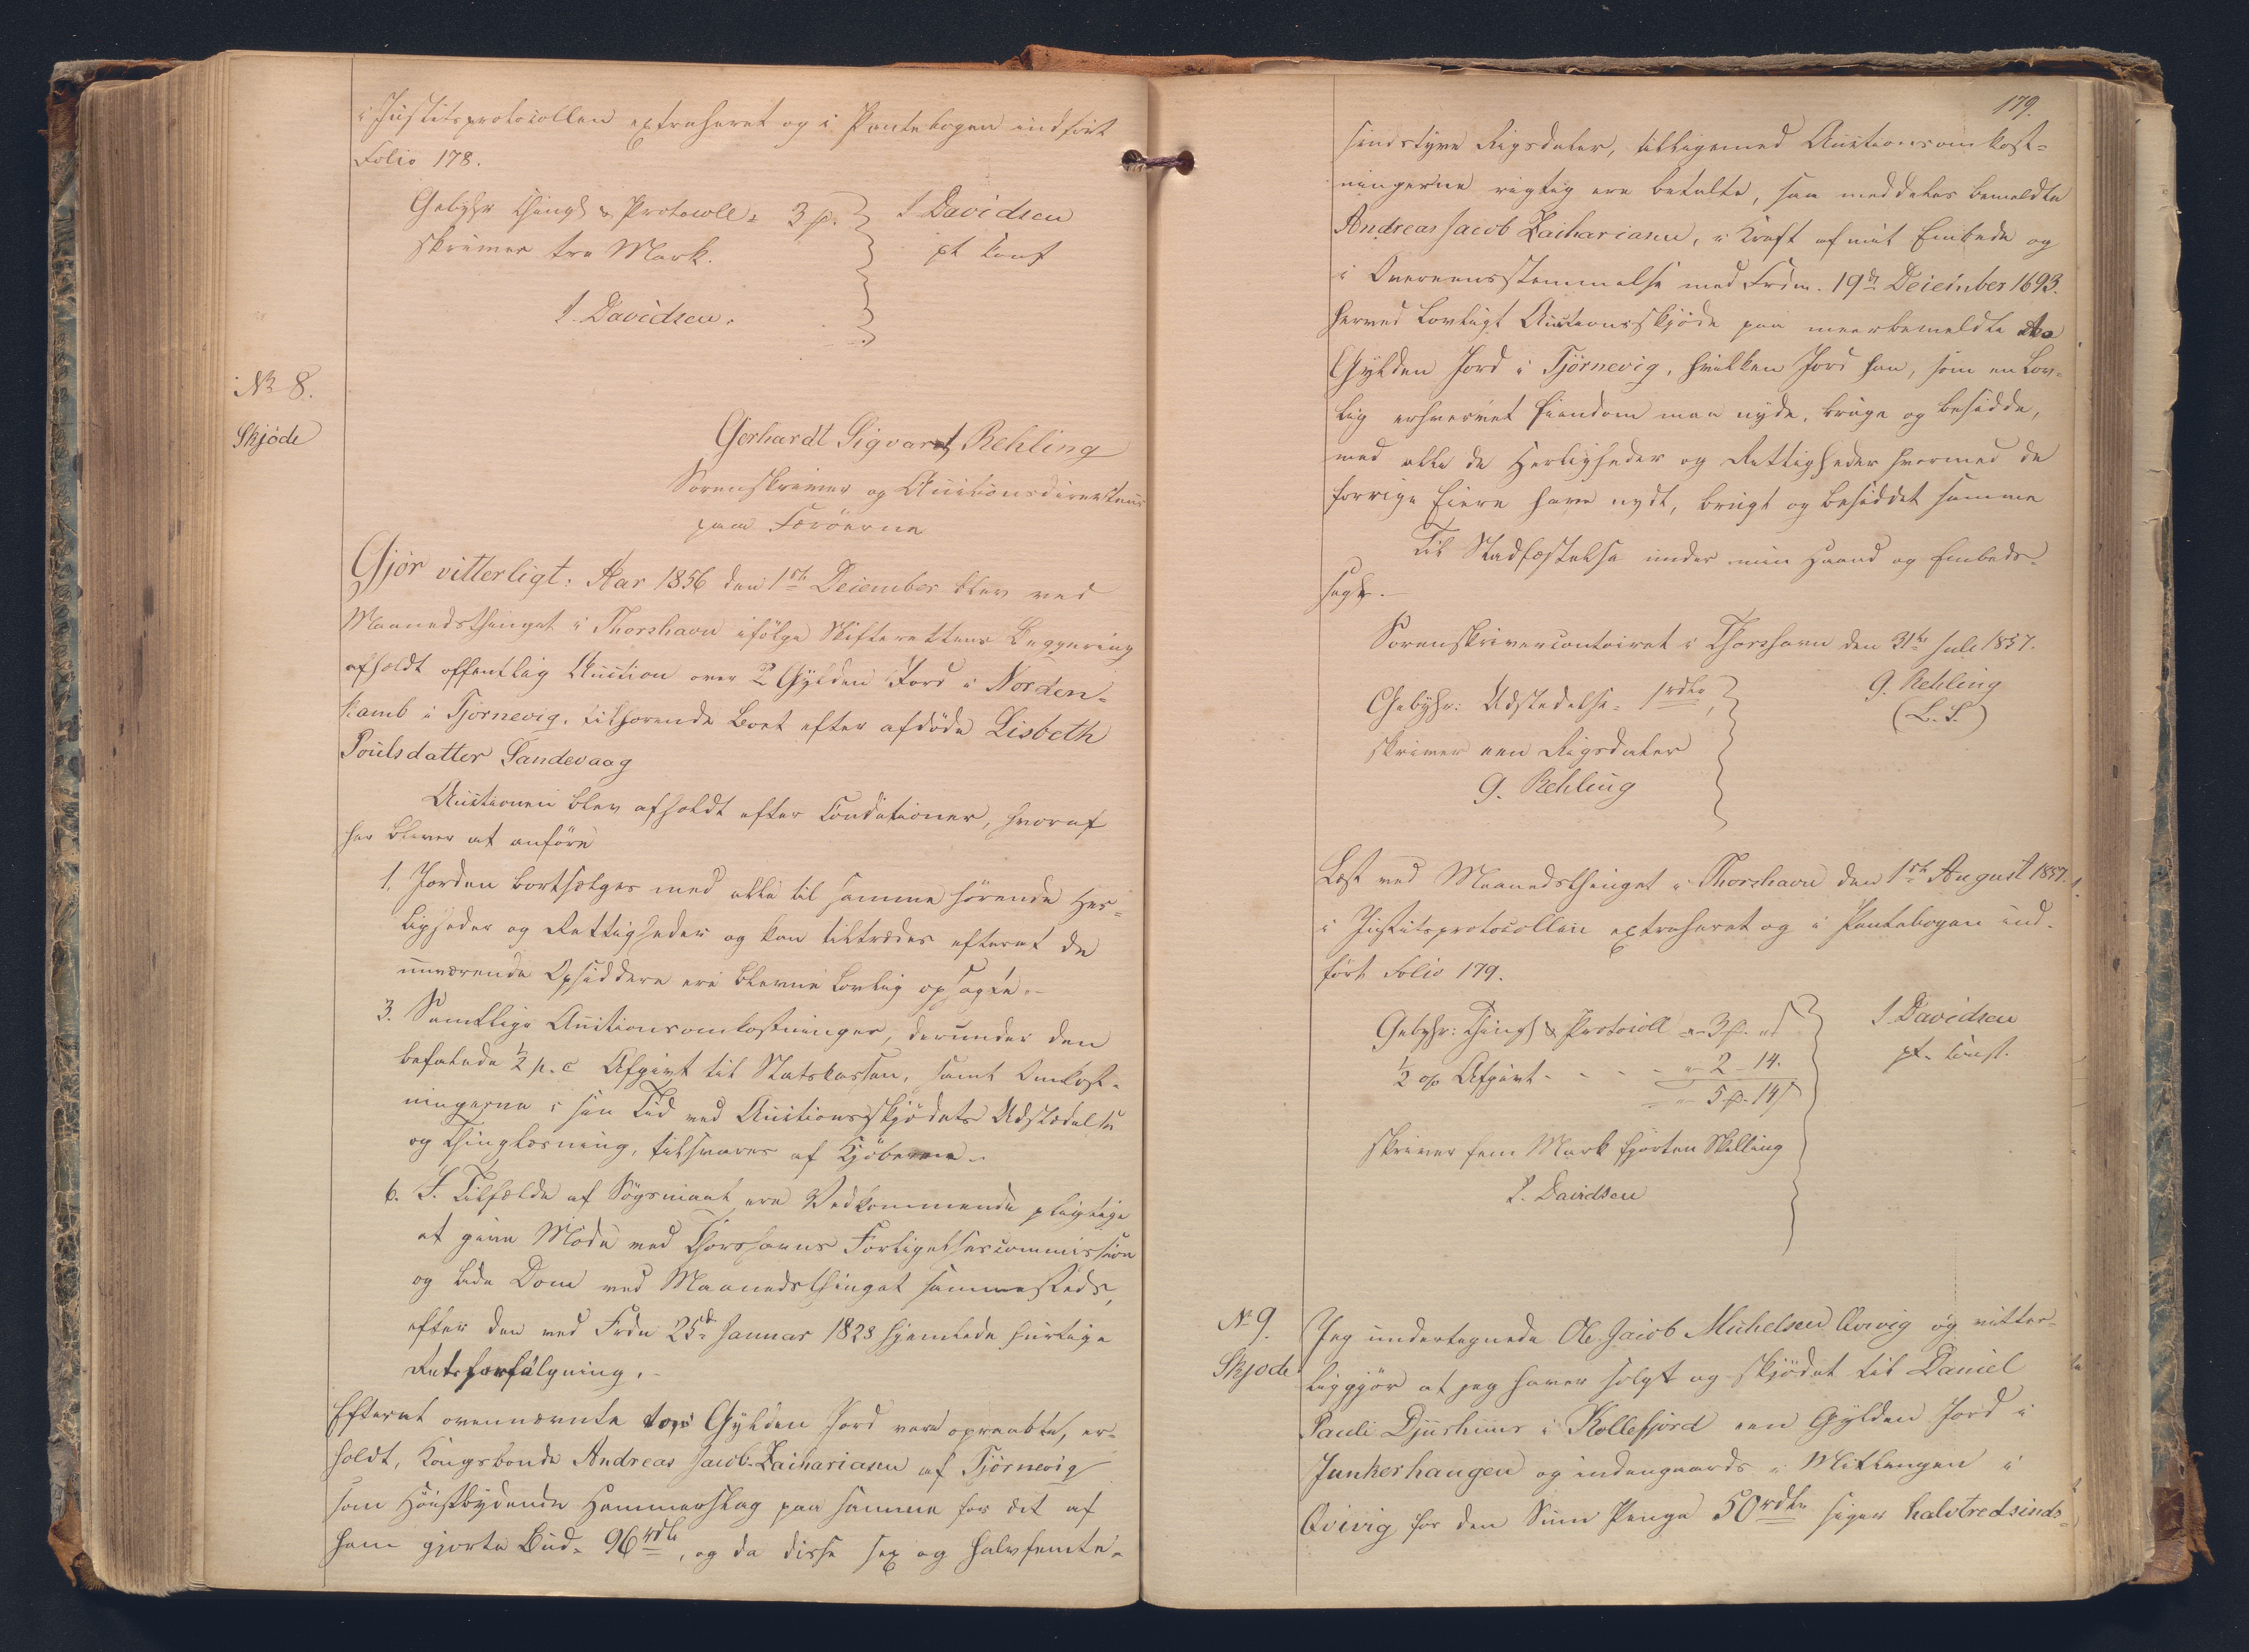 i Justitsprotocollen extraheret og i Pantebogen indført
Folio 178.
Gebyhr Thingl & Protocoll = 3 ß.
skriver tre Mark.
J. Davidsen.
J Davidsen
pt const
No 8.
Skjöde
Gerhardt Sigvardt Rehling
Sorenskriver og Auctionsdirecteur
paa Færöerne
Gjör vitterligt: Aar 1856 den 1ste December blev ved
Maanedsthinget i Thorshavn ifölge Skifterettens Begjæring
afholdt offentlig Auction over 2 Gylden Jord i Norden-
kamb i Tjörnevig, tilhörende Boet efter afdöde Lisbeth
Poulsdatter Sandevaag
Auctionen blev afholdt efter Conditioner, hvoraf
her bliver at anföre
1. Jorden bortsælges med alle til samme hörende Her-
ligheder og Rettigheder og kan tiltrædes efterat de
nuværende Opsiddere ere blevne lovlig opsagte.-
3. Samtlige Auctionsomkostninger, derunder den
befalede ½ p. c Afgivt til Statskassen, samt Omkost-
ningerne i sin Tid ved Auctionsskjödets Udstædelse
og Thinglæsning, tilsvares af Kjöberne.-
6. I Tilfælde af Sögsmaal ere Vedkommende pligtige
at give Möde ved Thorshavns Forligelsescommission
og lide Dom ved Maanedsthinget sammesteds,
efter den ved Frdn 25de Januar 1828 hjemlede hurtige
Retsforfölgning.-
Efterat ovennævnte to Gylden Jord vare opraabte, er-
holdt, Kongsbonde Andreas Jacob Zachariasen af Tjörnevig
som Höistbydende Hammerslag paa samme for det af
ham gjorte Bud - 96 rdlr, og da disse sex og halvfemte-
179.
sindstyve Rigsdaler, tilligemed Auctionsomkost-
ningerne rigtig ere betalte, saa meddeles bemeldte
Andreas Jacob Zachariasen, i Kraft af mit Embede og
i Overeensstemmelse med Frdn. 19de December 1693.
herved lovligt Auctionsskjöde paa meerbemeldte to
Gylden Jord i Tjörnevig, hvilken Jord han, som en lov-
lig erhvervet Eiendom maa nyde, bruge og besidde,
med alle de Herligheder og Rettigheder hvormed de
forrige Eiere have nydt, brugt og besiddet samme
Til Stadfæstelse under min Haand og Embeds-
segl.-
Sorenskrivercontoiret i Thorshavn den 31te Juli 1857.
G. Rehling
(L.S.)
Gebyhr: Udstedelse = 1 rdlr
skriver een Rigsdaler
G. Rehling
Læst ved Maanedsthinget i Thorshavn den 1ste August 1857.
i Justitsprotocollen extraheret og i Pantebogen ind-
fört Folio 179.
Gebyhr: Thingl & Protocoll - 3 ß - s
½ % Afgivt - - - - 2 - 14.
5 ß. 14 s
skriver fem Mark fjorten Skilling
J. Davidsen
J Davidsen
pt. const.
No 9.
Skjöde
Jeg undertegnede Ole Jacob Michelsen Qvivig og vitter-
liggjör at jeg haver solgt og skjödet til Daniel
Pauli Djurhuus i Kollefjord een Gylden Jord i
Junkerhaugen og indengaards i Mitlangen i
Qvivig for den Sum Penge 50 rdlr siger halvtredsinds-